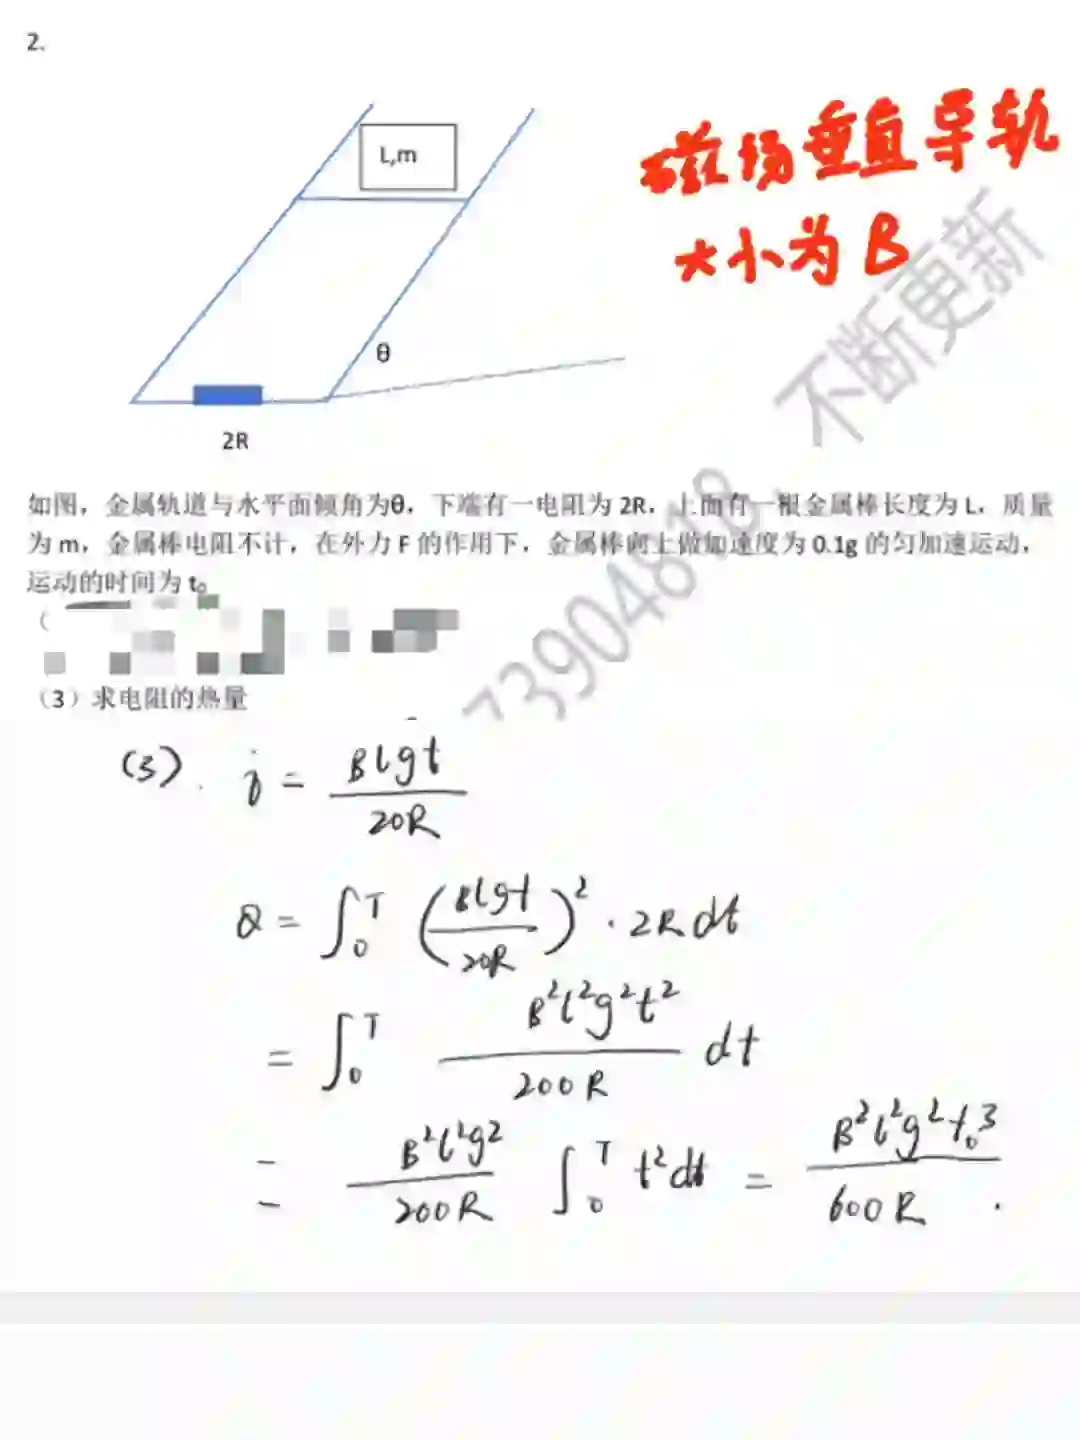 2.
L,m
磁场垂直导轨
大小为 B
θ
2R
不断更新
73904818
如图，金属轨道与水平面倾角为θ，下端有一电阻为 2R，上面有一根金属棒长度为 L，质量
为 m，金属棒电阻不计，在外力 F 的作用下，金属棒向上做加速度为 0.1g 的匀加速运动，
运动的时间为 t。
（
（3）求电阻的热量
(3). i = Blgt / 20R
Q = ∫₀ᵀ (Blgt / 20R)² · 2R dt
= ∫₀ᵀ B²l²g²t² / 200R dt
= B²l²g² / 200R ∫₀ᵀ t²dt = B²l²g²t₀³ / 600R .